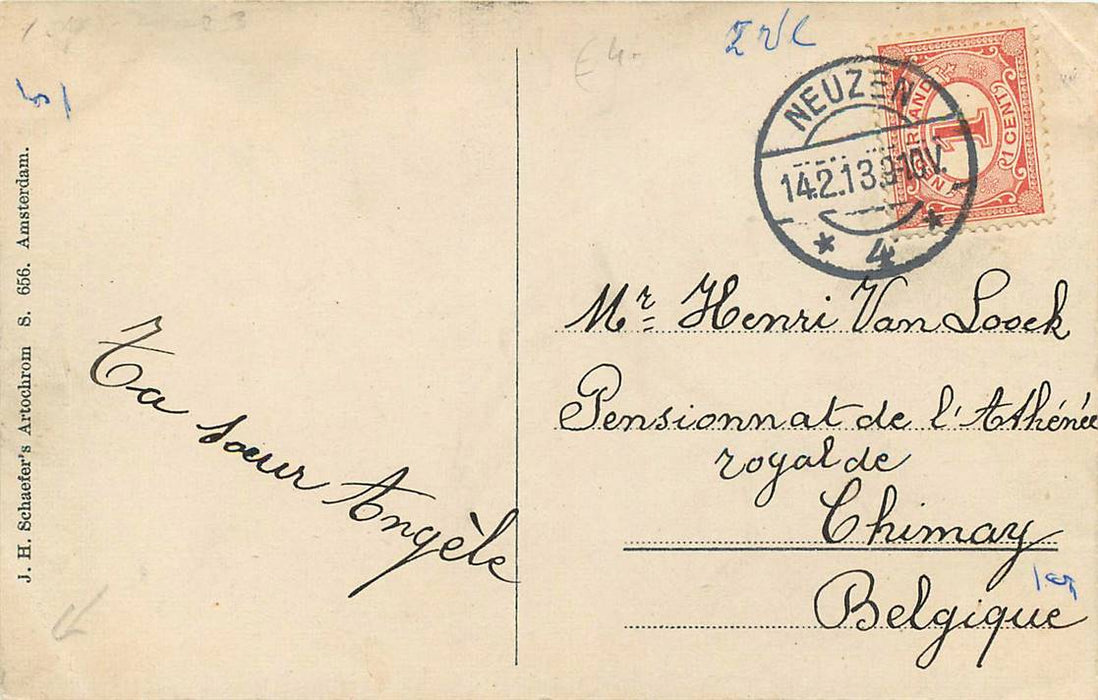 £ 4-
NEUZEN
14.2.13.9-10V.
4
1
1 CENT
Mr Henri Van Loock
Pensionnat de l'Athénée
royal de
Chimay
Belgique
Ta sœur Angèle
J. H. Schaefer's Artochrom S. 656. Amsterdam.